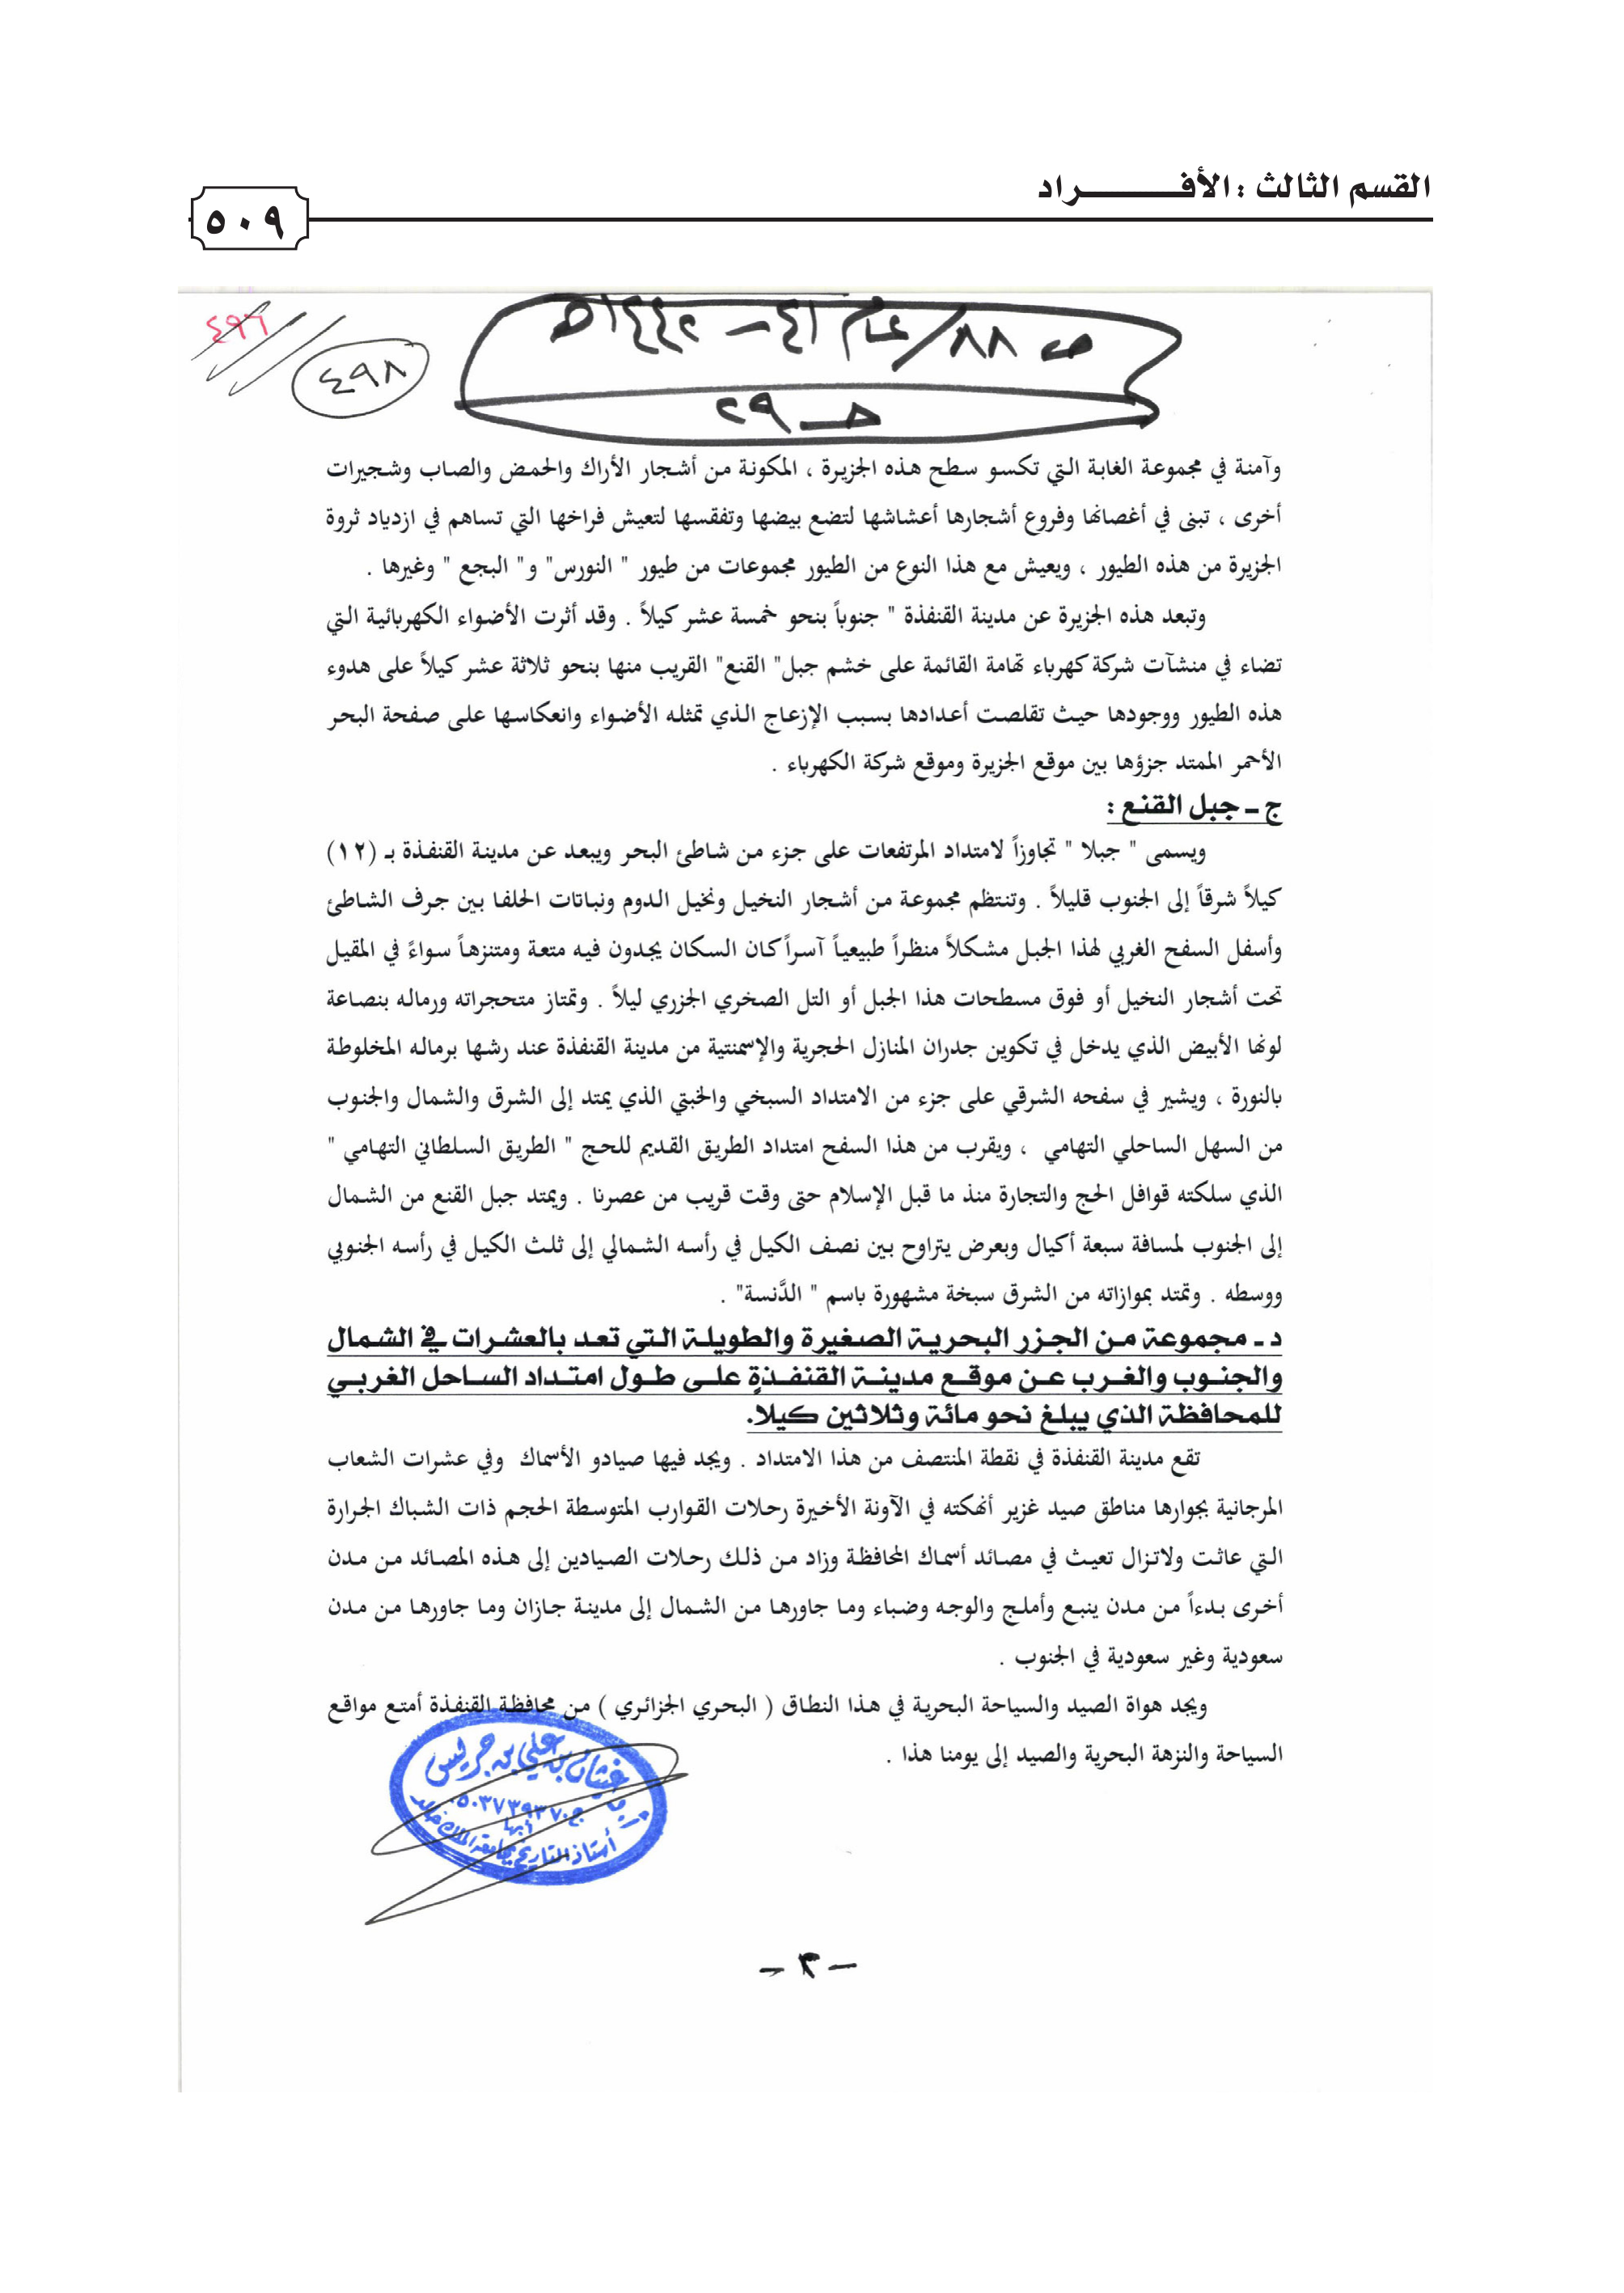 القسم الثالث : الأفـــــــــراد
٥٠٩
٤٩٦
٤٩٨
ص ٨٨/ عام ٤١ – ١٤٤٢هـ
حـ ٢٩
وآمنة في مجموعة الغابة التي تكسو سطح هذه الجزيرة ، المكونة من أشجار الأراك والحمض والصاب وشجيرات
أخرى ، تبنى في أغصانها وفروع أشجارها أعشاشها لتضع بيضها وتفقسها لتعيش فراخها التي تساهم في ازدياد ثروة
الجزيرة من هذه الطيور ، ويعيش مع هذا النوع من الطيور مجموعات من طيور " النورس" و" البجع " وغيرها .
وتبعد هذه الجزيرة عن مدينة القنفذة " جنوباً بنحو خمسة عشر كيلاً . وقد أثرت الأضواء الكهربائية التي
تضاء في منشآت شركة كهرباء تهامة القائمة على خشم جبل" القنع" القريب منها بنحو ثلاثة عشر كيلاً على هدوء
هذه الطيور ووجودها حيث تقلصت أعدادها بسبب الإزعاج الذي تمثله الأضواء وانعكاسها على صفحة البحر
الأحمر الممتد جزؤها بين موقع الجزيرة وموقع شركة الكهرباء .
ج ـ جبل القنع :
ويسمى " جبلا " تجاوزاً لامتداد المرتفعات على جزء من شاطئ البحر ويبعد عن مدينة القنفذة بـ (١٢)
كيلاً شرقاً إلى الجنوب قليلاً . وتنتظم مجموعة من أشجار النخيل ونخيل الدوم ونباتات الحلفا بين جرف الشاطئ
وأسفل السفح الغربي لهذا الجبل مشكلاً منظراً طبيعياً آسراً كان السكان يجدون فيه متعة ومتنزهاً سواءً في المقيل
تحت أشجار النخيل أو فوق مسطحات هذا الجبل أو التل الصخري الجزري ليلاً . وتمتاز متحجراته ورماله بنصاعة
لونها الأبيض الذي يدخل في تكوين جدران المنازل الحجرية والإسمنتية من مدينة القنفذة عند رشها برماله المخلوطة
بالنورة ، ويشير في سفحه الشرقي على جزء من الامتداد السبخي والخبتي الذي يمتد إلى الشرق والشمال والجنوب
من السهل الساحلي التهامي ، ويقرب من هذا السفح امتداد الطريق القديم للحج " الطريق السلطاني التهامي "
الذي سلكته قوافل الحج والتجارة منذ ما قبل الإسلام حتى وقت قريب من عصرنا . ويمتد جبل القنع من الشمال
إلى الجنوب لمسافة سبعة أكيال وبعرض يتراوح بين نصف الكيل في رأسه الشمالي إلى ثلث الكيل في رأسه الجنوبي
ووسطه . وتمتد بموازاته من الشرق سبخة مشهورة باسم " الدَّنسة" .
د ـ مجموعة من الجزر البحرية الصغيرة والطويلة التي تعد بالعشرات في الشمال
والجنوب والغرب عن موقع مدينة القنفذةِ على طول امتداد الساحل الغربي
للمحافظة الذي يبلغ نحو مائة وثلاثين كيلا.
تقع مدينة القنفذة في نقطة المنتصف من هذا الامتداد . ويجد فيها صيادو الأسماك وفي عشرات الشعاب
المرجانية بجوارها مناطق صيد غزير أنهكته في الآونة الأخيرة رحلات القوارب المتوسطة الحجم ذات الشباك الجرارة
التي عاثت ولاتزال تعيث في مصائد أسماك المحافظة وزاد من ذلك رحلات الصيادين إلى هذه المصائد من مدن
أخرى بدءاً من مدن ينبع وأملج والوجه وضباء وما جاورها من الشمال إلى مدينة جازان وما جاورها من مدن
سعودية وغير سعودية في الجنوب .
ويجد هواة الصيد والسياحة البحرية في هذا النطاق ( البحري الجزائري ) من محافظة القنفذة أمتع مواقع
السياحة والنزهة البحرية والصيد إلى يومنا هذا .
غيثان بن علي بن جريس
ج ٠٥٠٣٧٣٩٣٧٠
أبها
أستاذ التاريخ بجامعة الملك خالد
– ٣ –